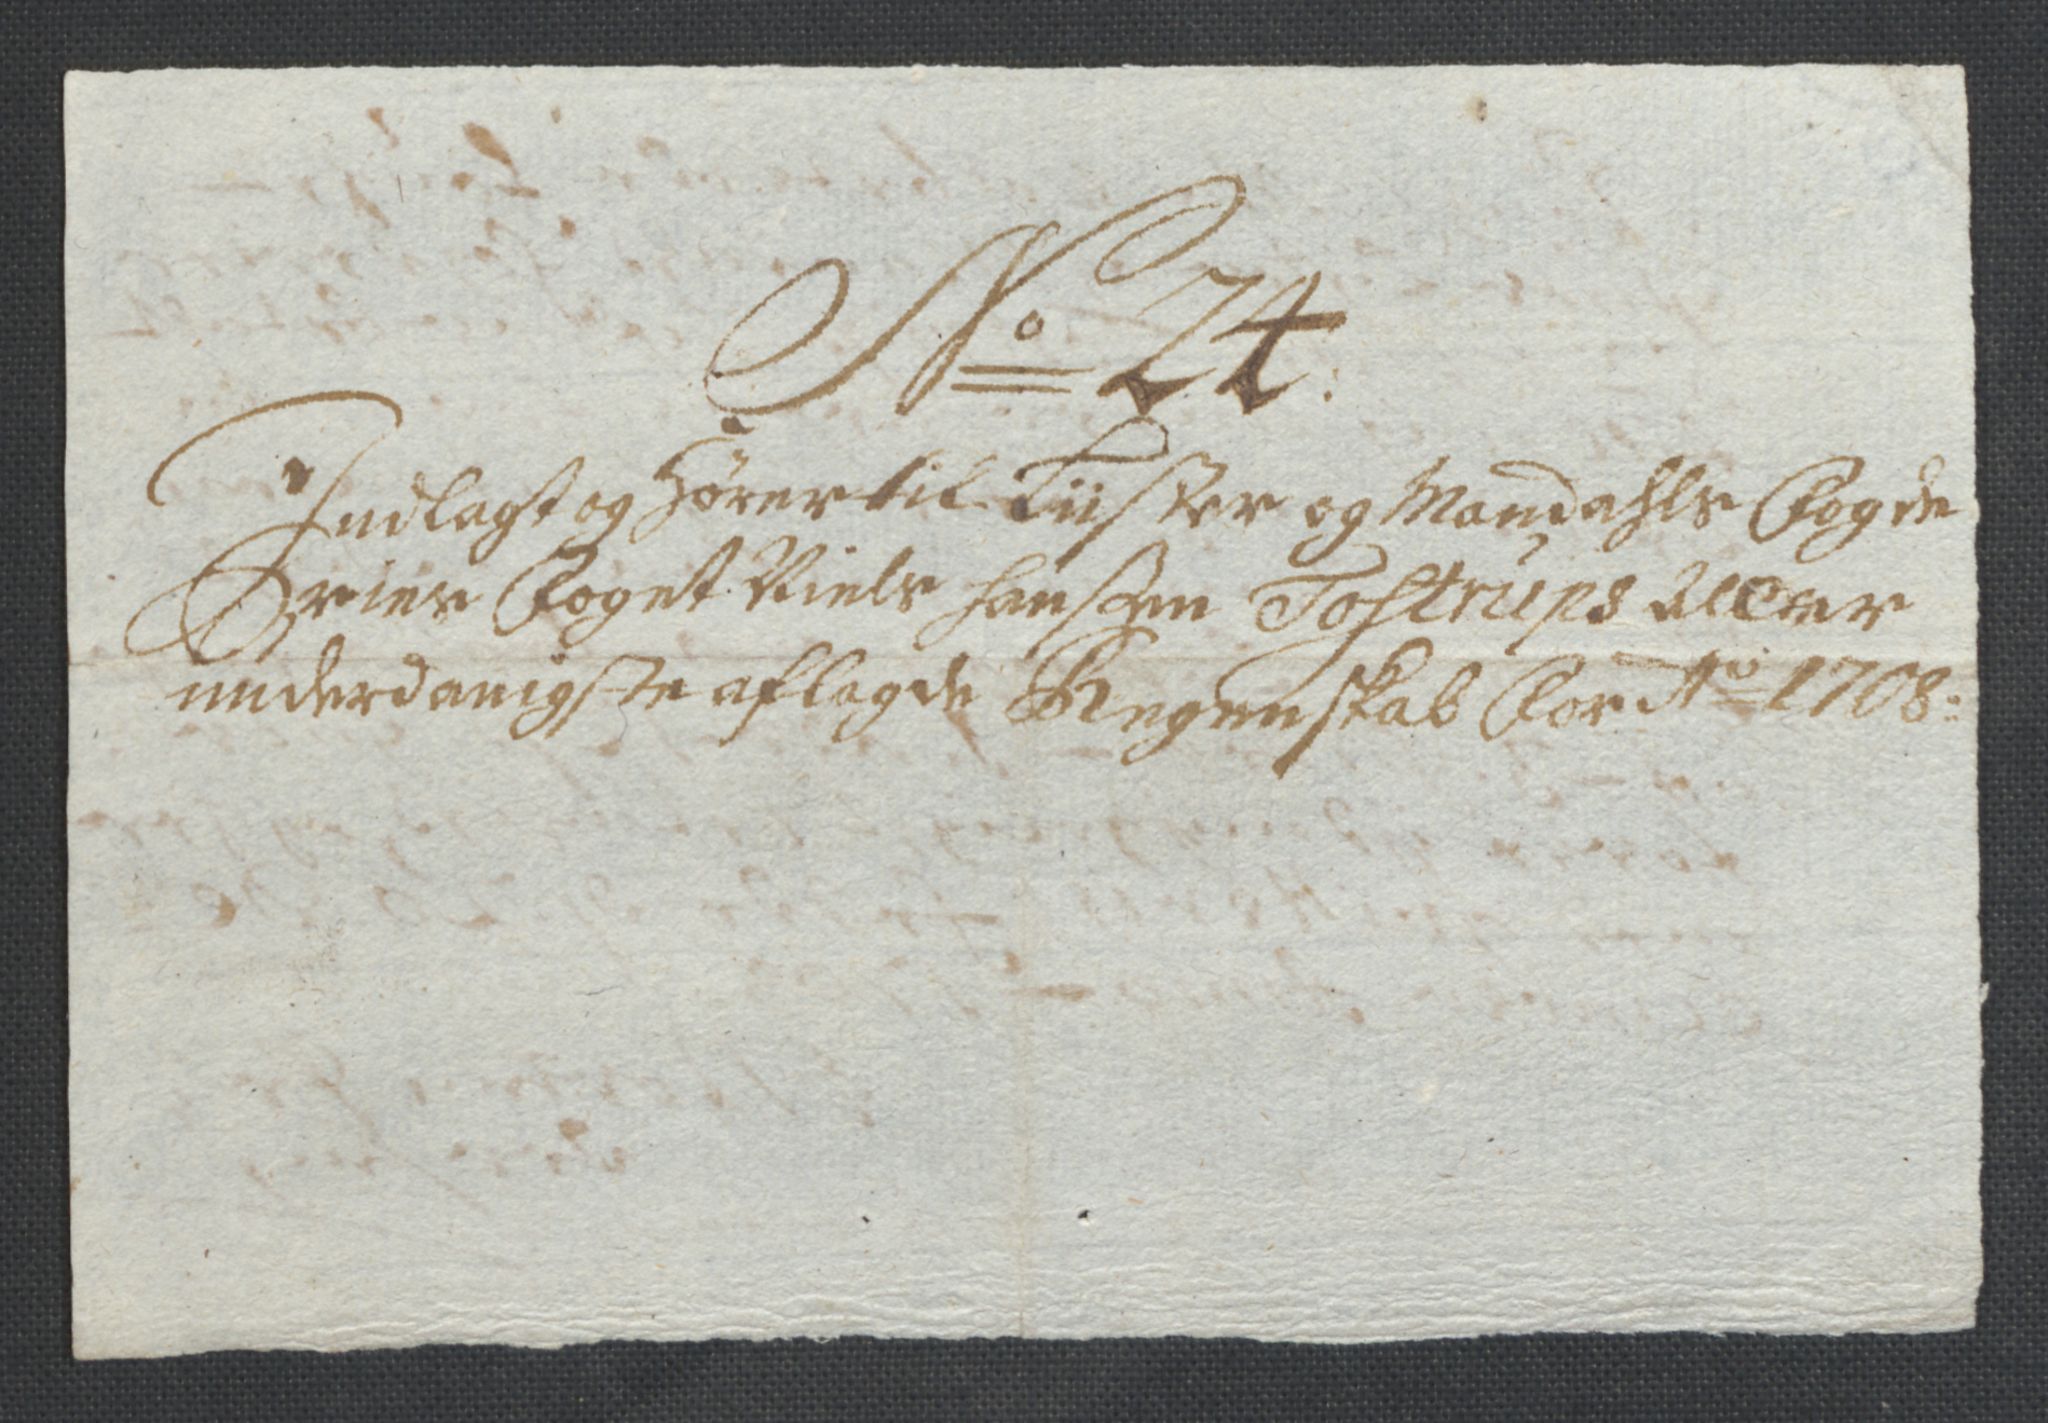 No 24.
Indlagt og hører til Lüster og Mandahls Fogde
Erier Foget Niels Hanssen Tostrups Aller
underdanigste aflagde Regenskab for Ao 1708: